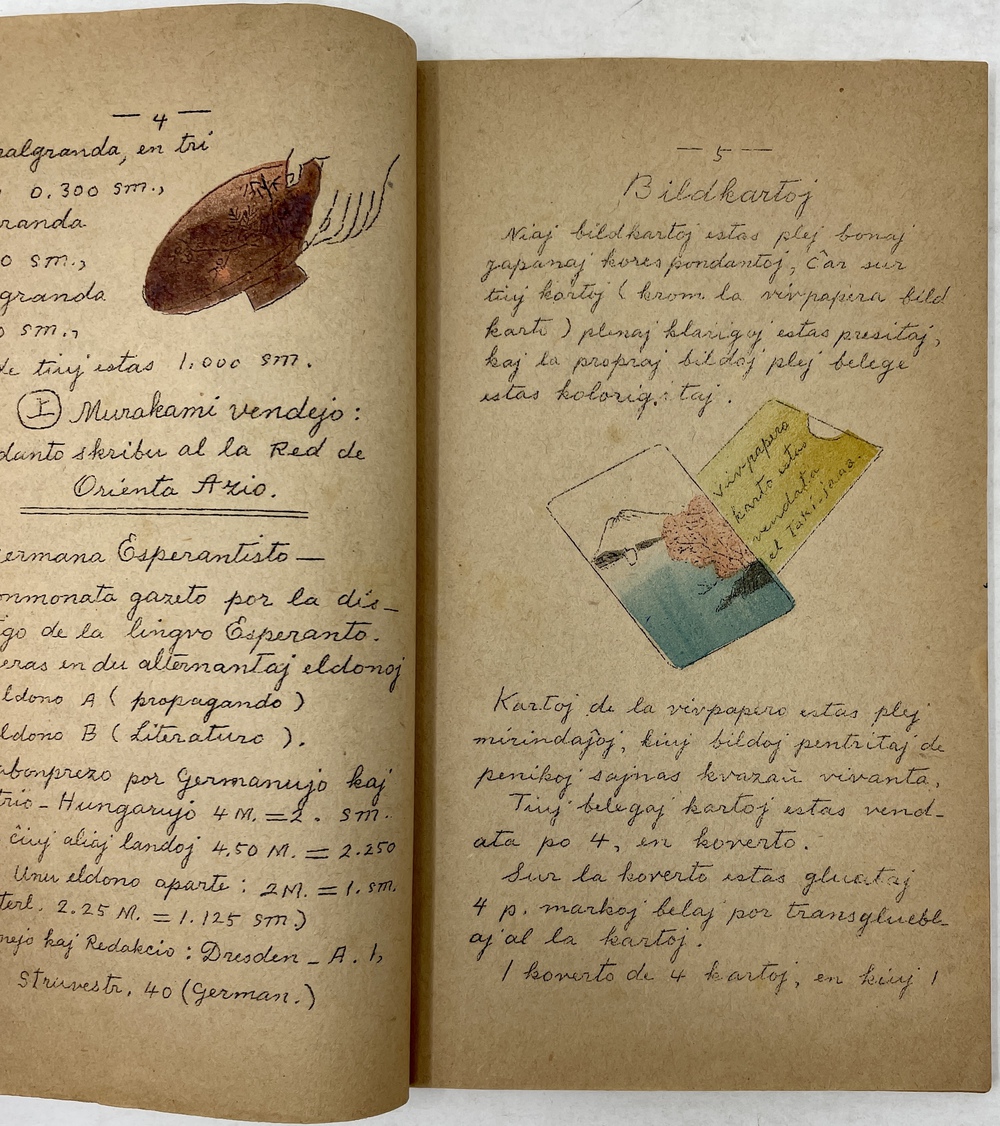 — 4 —
algranda, en tri
0.300 sm.,
randa
0 sm.,
granda
0 sm.,
de tiuj estas 1.000 sm.
I Murakami vendejo:
danto skribu al la Red de
Orienta Azio.
ermana Esperantisto —
onmonata gazeto por la dis-
igo de la lingvo Esperanto.
eras en du alternantaj eldonoj
ldono A ( propagando )
ldono B ( Literaturo ).
abonprezo por Germanujo kaj
trio-Hungarujo 4 M. = 2. sm.
ĉiuj aliaj landoj 4.50 M. = 2.250
Unu eldono aparte : 2 M. = 1. sm.
terl. 2.25 M. = 1.125 sm.)
nejo kaj Redakcio : Dresden - A. 1,
Struvestr. 40 (German.)
— 5 —
Bildkartoj
Niaj bildkartoj estas plej bonaj
japanaj korespondantoj, ĉar sur
tiuj kartoj ( krom la vivpapera bild
karto ) plenaj klarigoj estas presitaj,
kaj la propraj bildoj plej belege
estas kolorigitaj.
vivpapero
karto estas
vendata
el Taki-jaaa.
Kartoj de la vivpapero estas plej
mirindaĵoj, kiuj bildoj pentritaj de
penikoj sajnas kvazaŭ vivanta.
Tiuj belegaj kartoj estas vend-
ata po 4, en koverto.
Sur la koverto estas gluataj
4 p. markoj belaj por transgluebl-
aj al la kartoj.
1 koverto de 4 kartoj, en kiuj 1